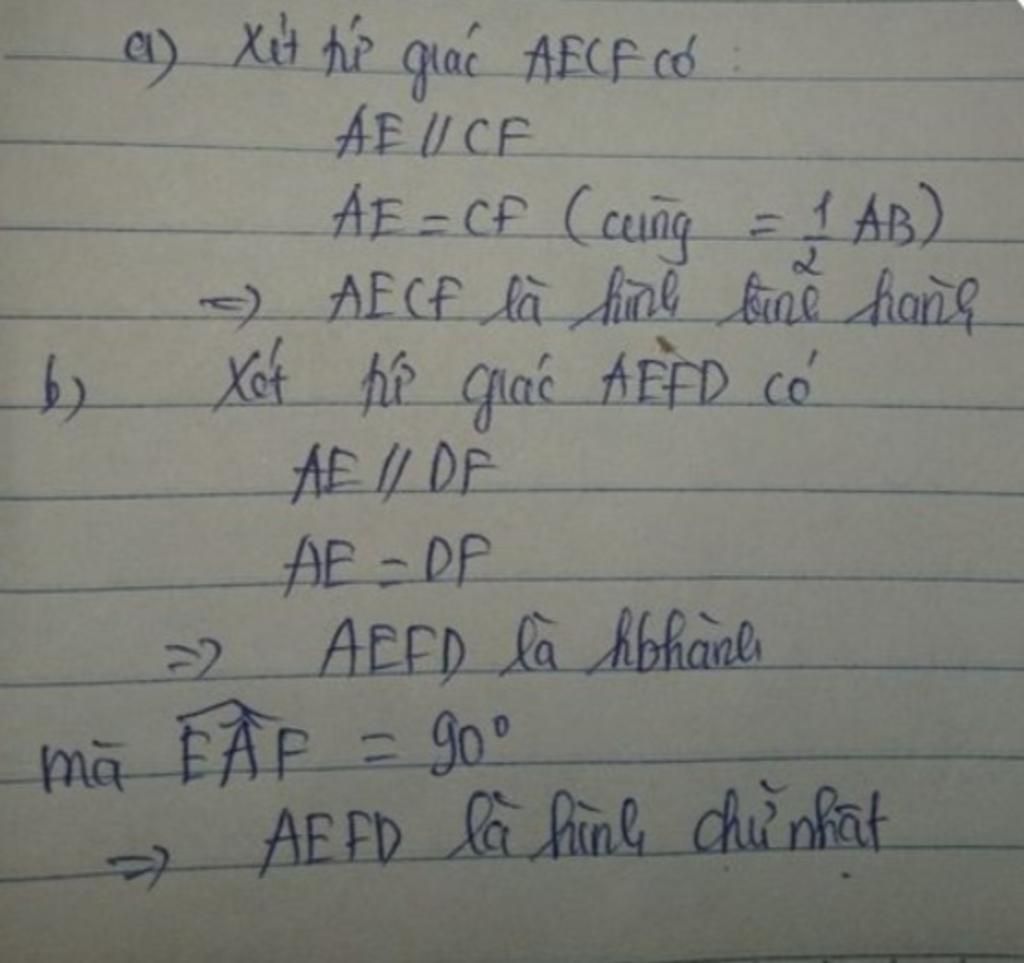 a) Xét tứ giác AECF có:
AE // CF
AE = CF (cùng = 1/2 AB)
=> AECF là hình bình hành
b) Xét tứ giác AEFD có
AE // DF
AE = DF
=> AEFD là hbhành
mà EAF = 90°
=> AEFD là hình chữ nhật